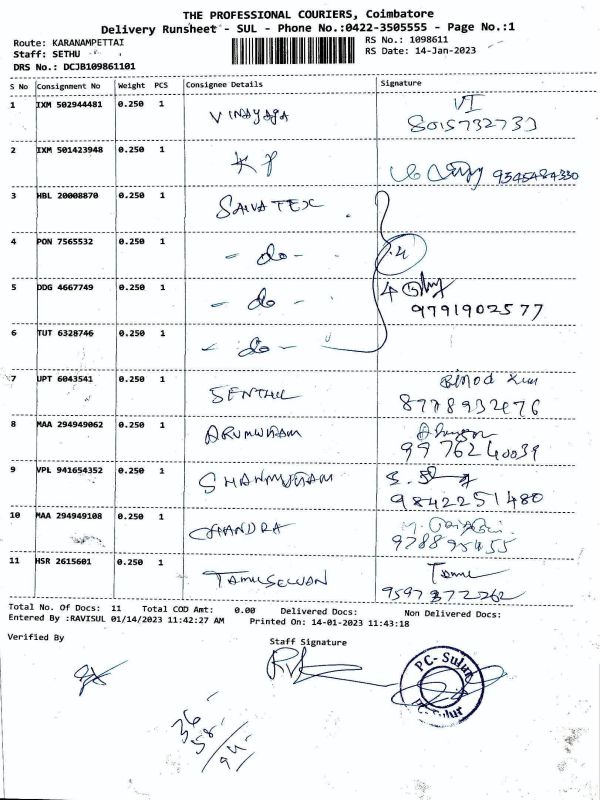 THE PROFESSIONAL COURIERS, Coimbatore
Delivery Runsheet - SUL - Phone No.:0422-3505555 - Page No.:1
Route: KARANAMPETTAI
RS No.: 1098611
Staff: SETHU
RS Date: 14-Jan-2023
DRS No.: DCJB109861101
S No Consignment No Weight PCS Consignee Details Signature
1 IXM 502944481 0.250 1 VINAYAGA VI
8015732733
2 IXM 501423948 0.250 1 KP 9345484330
3 HBL 20008870 0.250 1 SAIVA TEX
4 PON 7565532 0.250 1 - do -
5 DDG 4667749 0.250 1 - do - 4
9791902577
6 TUT 6328746 0.250 1 - do -
7 UPT 6043541 0.250 1 SENTHIL Binod
8778932476
8 MAA 294949062 0.250 1 ARUMUGAM
9976240039
9 VPL 941654352 0.250 1 SHANMUGAM
9842251480
10 MAA 294949108 0.250 1 CHANDRA
11 HSR 2615601 0.250 1 TAMILSELVAN Tamil
9597372262
Total No. Of Docs: 11 Total COD Amt: 0.00 Delivered Docs: Non Delivered Docs:
Entered By :RAVISUL 01/14/2023 11:42:27 AM Printed On: 14-01-2023 11:43:18
Verified By
Staff Signature
PC- Sulur
36
58
94